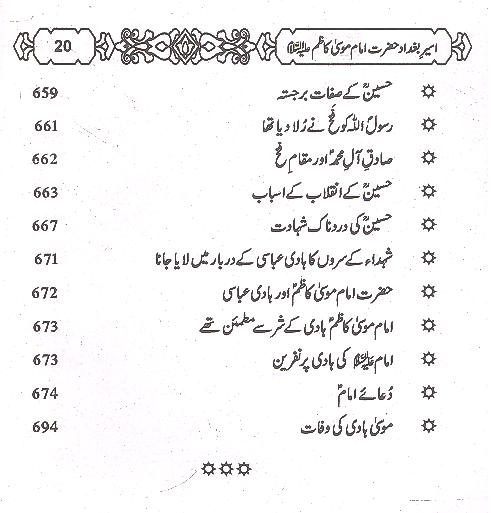 اسیرِ بغداد حضرت امام موسیٰ کاظم علیہ السلام 20
حسینؓ کے صفات برجستہ 659
رسولؐ اللہ کو فخؒ نے رُلا دیا تھا 661
صادقِ آلِ محمدؐ اور مقامِ فخؒ 662
حسینؓ کے انقلاب کے اسباب 663
حسینؓ کی دردناک شہادت 667
شہداء کے سروں کا ہادی عباسی کے دربار میں لایا جانا 671
حضرت امام موسیٰ کاظمؑ اور ہادی عباسی 672
امام موسیٰ کاظمؑ ہادی کے شر سے مطمئن تھے 673
امام علیہ السلام کی ہادی پر نفرین 673
دُعائے امامؑ 674
موسیٰ ہادی کی وفات 694